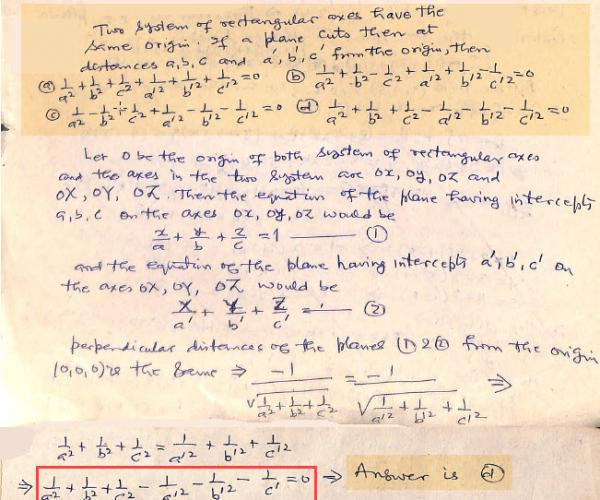 Two system of rectangular axes have the
same origin. If a plane cuts then at
distances a,b,c and a',b',c' from the origin, then
(a) 1/a² + 1/b² + 1/c² + 1/a'² + 1/b'² + 1/c'² = 0 (b) 1/a² + 1/b² - 1/c² + 1/a'² + 1/b'² - 1/c'² = 0
(c) 1/a² - 1/b² + 1/c² + 1/a'² - 1/b'² - 1/c'² = 0 (d) 1/a² + 1/b² + 1/c² - 1/a'² - 1/b'² - 1/c'² = 0
Let O be the origin of both system of rectangular axes
and the axes in the two system are ox, oy, oz and
OX, OY, OZ. Then the equation of the plane having intercepts
a,b,c on the axes ox, oy, oz would be
x/a + y/b + z/c = 1 —— (1)
and the equation of the plane having intercepts a',b',c' on
the axes OX, OY, OZ would be
X/a' + Y/b' + Z/c' = —— (2)
perpendicular distances of the planes (1) & (2) from the origin
(0,0,0) is the same ⇒ -1/√(1/a² + 1/b² + 1/c²) = -1/√(1/a'² + 1/b'² + 1/c'²) ⇒
1/a² + 1/b² + 1/c² = 1/a'² + 1/b'² + 1/c'²
⇒ 1/a² + 1/b² + 1/c² - 1/a'² - 1/b'² - 1/c' = 0 ⇒ Answer is (d)